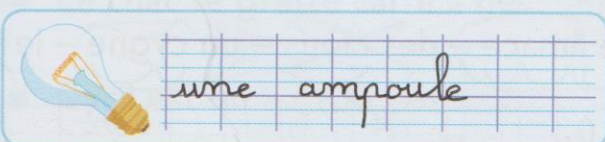 une ampoule